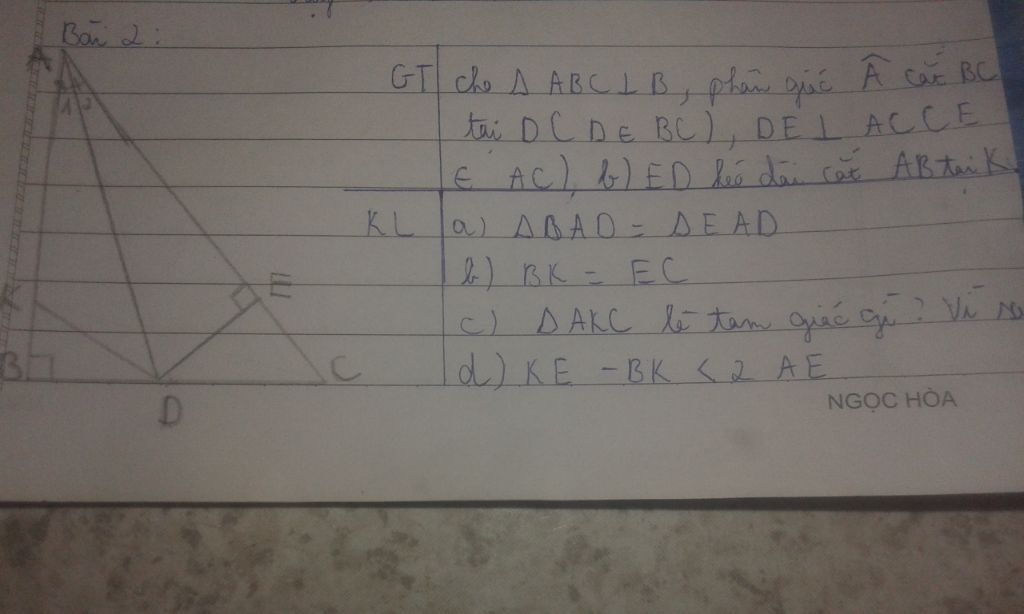 Bài 2:
GT cho Δ ABC ⊥ B, phân giác Â cắt BC
tại D ( D ∈ BC ), DE ⊥ AC ( E
∈ AC ), b) ED kéo dài cắt AB tại K.
KL a) Δ BAD = Δ EAD
b) BK = EC
c) Δ AKC là tam giác gì? Vì
d) KE - BK < 2 AE
A
1 2
E
K
B
C
D
NGỌC HÒA